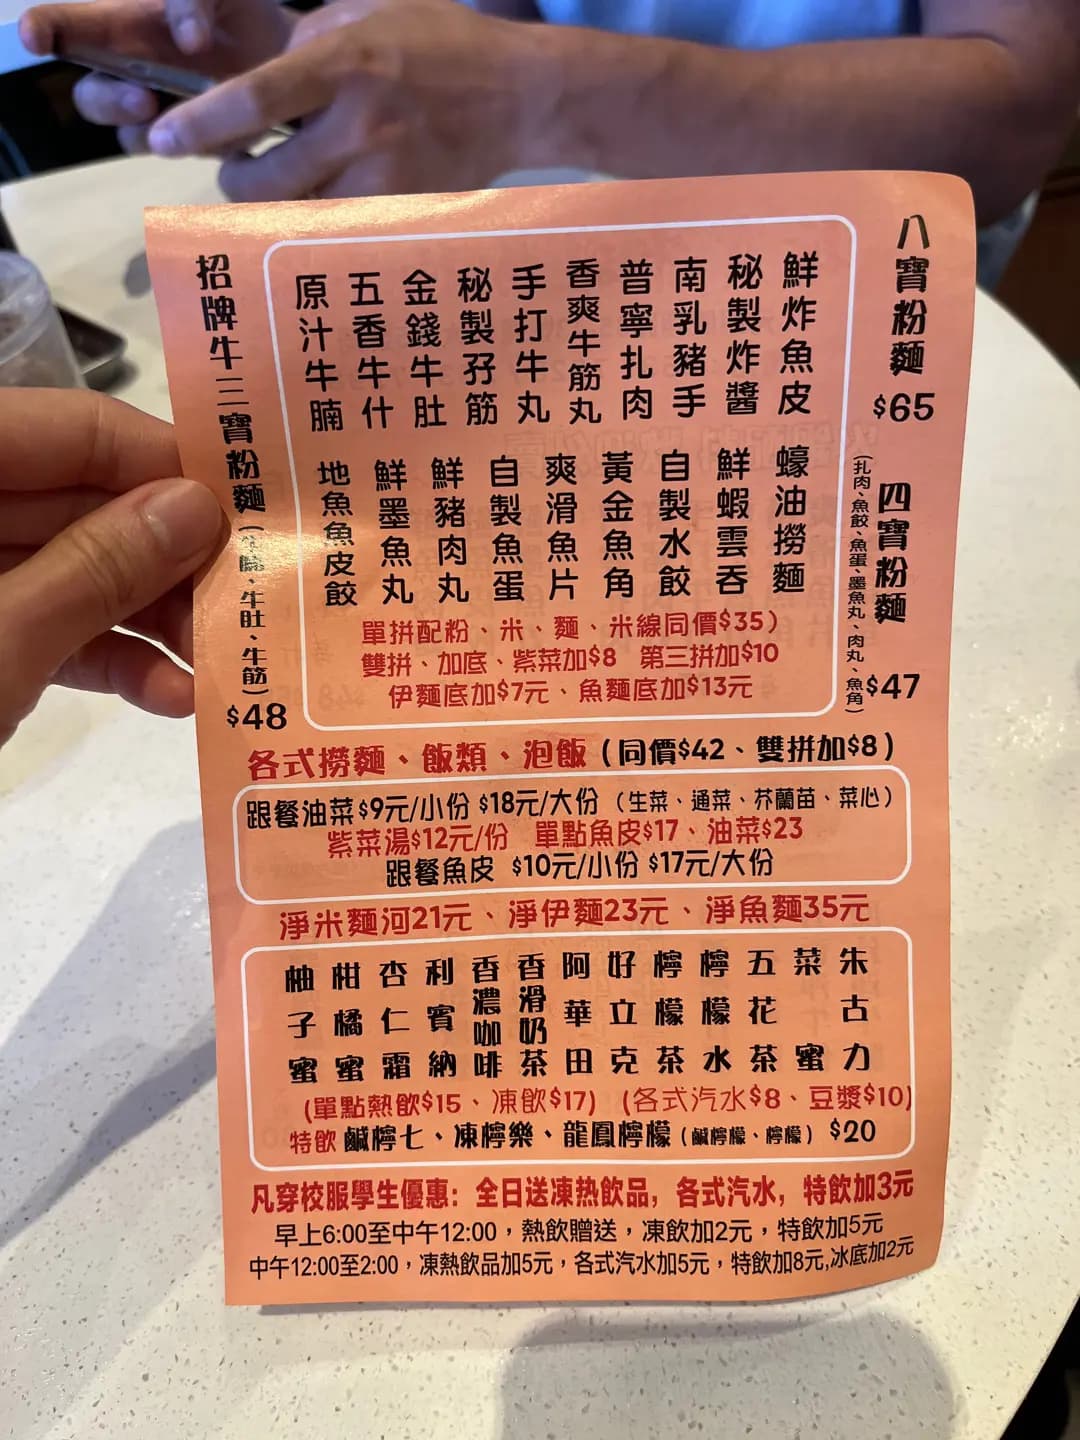 八寶粉麵
$65
四寶粉麵
(扎肉、魚餃、魚蛋、墨魚丸、肉丸、魚角)
$47
鮮炸魚皮
秘製炸醬
南乳豬手
普寧扎肉
香爽牛筋丸
手打牛丸
秘製孖筋
金錢牛肚
五香牛什
原汁牛腩
蠔油撈麵
鮮蝦雲吞
自製水餃
黃金魚角
爽滑魚片
自製魚蛋
鮮豬肉丸
鮮墨魚丸
地魚魚皮餃
單拼配粉、米、麵、米線同價$35)
雙拼、加底、紫菜加$8 第三拼加$10
伊麵底加$7元、魚麵底加$13元
招牌牛三寶粉麵(牛腩、牛肚、牛筋)
$48
各式撈麵、飯類、泡飯(同價$42、雙拼加$8)
跟餐油菜$9元/小份 $18元/大份 (生菜、通菜、芥蘭苗、菜心)
紫菜湯$12元/份 單點魚皮$17、油菜$23
跟餐魚皮 $10元/小份 $17元/大份
淨米麵河21元、淨伊麵23元、淨魚麵35元
朱古力
菜蜜
五花茶
檸檬水
檸檬茶
好立克
阿華田
香滑奶茶
香濃咖啡
利賓納
杏仁霜
柑橘蜜
柚子蜜
(單點熱飲$15、凍飲$17) (各式汽水$8、豆漿$10)
特飲 鹹檸七、凍檸樂、龍鳳檸檬(鹹檸檬、檸檬) $20
凡穿校服學生優惠：全日送凍热飲品，各式汽水，特飲加3元
早上6:00至中午12:00，熱飲贈送，凍飲加2元，特飲加5元
中午12:00至2:00，凍熱飲品加5元，各式汽水加5元，特飲加8元,冰底加2元